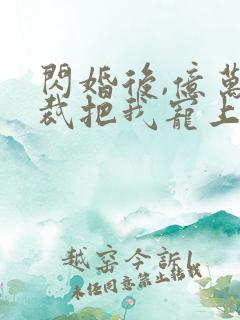 閃婚後,億萬
裁把我寵上
越窑今訴
未经同意禁止轉载